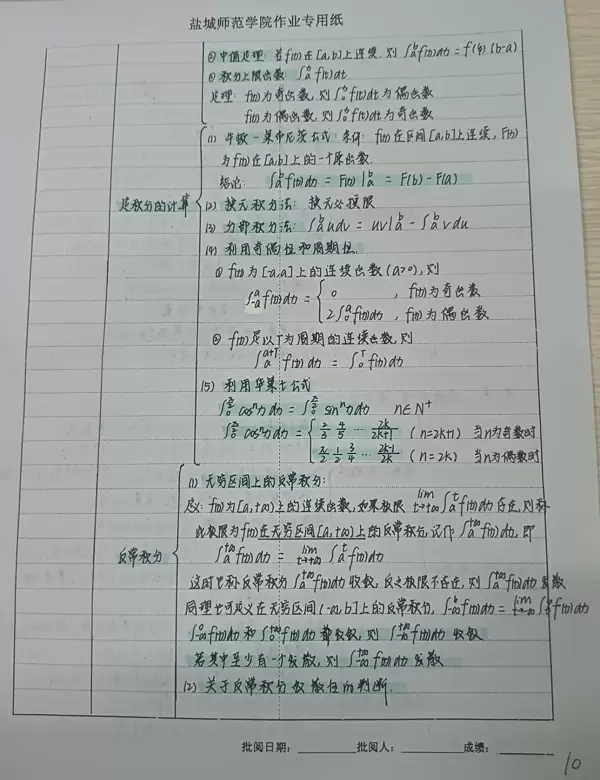 盐城师范学院作业专用纸
② 中值定理: 若f(x)在[a,b]上连续, 则 ∫_a^b f(x)dx = f(ξ)(b-a)
③ 积分上限函数: ∫_a^x f(t)dt
定理: f(x)为奇函数, 则∫_0^x f(t)dt为偶函数
f(x)为偶函数, 则∫_0^x f(t)dt为奇函数
定积分的计算
(1) 牛顿-莱布尼茨公式 条件: f(x)在区间[a,b]上连续, F(x)
为f(x)在[a,b]上的一个原函数.
结论: ∫_a^b f(x)dx = F(x)|_a^b = F(b)-F(a)
(2) 换元积分法: 换元必换限
(3) 分部积分法: ∫_a^b udv = uv|_a^b - ∫_a^b vdu
(4) 利用奇偶性和周期性
① f(x)为[-a,a]上的连续函数(a>0), 则
∫_{-a}^a f(x)dx = { 0 , f(x)为奇函数
2∫_0^a f(x)dx , f(x)为偶函数
② f(x)是以T为周期的连续函数, 则
∫_a^{a+T} f(x)dx = ∫_0^T f(x)dx
(5) 利用华莱士公式
∫_0^{π/2} cosⁿx dx = ∫_0^{π/2} sinⁿx dx n∈N⁺
∫_0^{π/2} cosⁿx dx = { 2/3 · 4/5 ··· 2k/(2k+1) (n=2k+1) 当n为奇数时
π/2 · 1/2 · 3/4 ··· (2k-1)/2k (n=2k) 当n为偶数时
反常积分
(1) 无穷区间上的反常积分:
定义: f(x)为[a,+∞)上的连续函数, 如果极限 lim_{t→+∞} ∫_a^t f(x)dx 存在, 则称
此极限为f(x)在无穷区间[a,+∞)上的反常积分, 记作 ∫_a^{+∞} f(x)dx, 即
∫_a^{+∞} f(x)dx = lim_{t→+∞} ∫_a^t f(x)dx
这时也称反常积分 ∫_a^{+∞} f(x)dx 收敛, 反之极限不存在, 则 ∫_a^{+∞} f(x)dx 发散
同理也可定义在无穷区间(-∞,b]上的反常积分, ∫_{-∞}^b f(x)dx = lim_{t→-∞} ∫_t^b f(x)dx
∫_{-∞}^0 f(x)dx 和 ∫_0^{+∞} f(x)dx 都收敛, 则 ∫_{-∞}^{+∞} f(x)dx 收敛
若其中至少有一个发散, 则 ∫_{-∞}^{+∞} f(x)dx 发散
(2) 关于反常积分敛散性的判断.
批阅日期: 批阅人: 成绩:
10